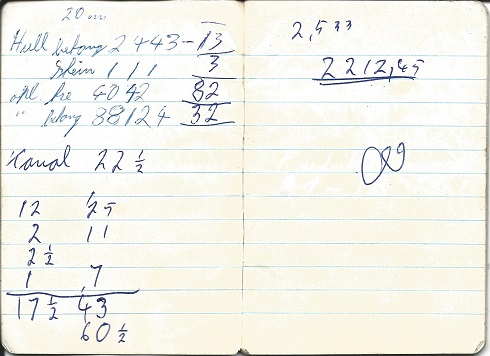 20 mm
Hull betong 2 4 4 3 - 13
Stein 1 1 1 3
opl. Pre 40 42 82
" betong 38 12 4 32
Kanal 22 ½
12 25
2 11
2 ½
1 7
17 ½ 43
60 ½
2,533
2212,45